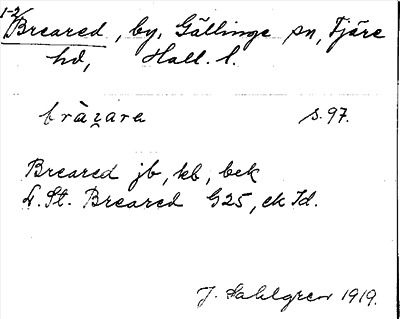 1-2/
Breared, by, Gällinge sn, Fjäre
hd, Hall. l.
bràʒara s. 97.
Breared jb, kb, bek
L. St. Breared G25, ek Id.
J. Sahlgren 1919.